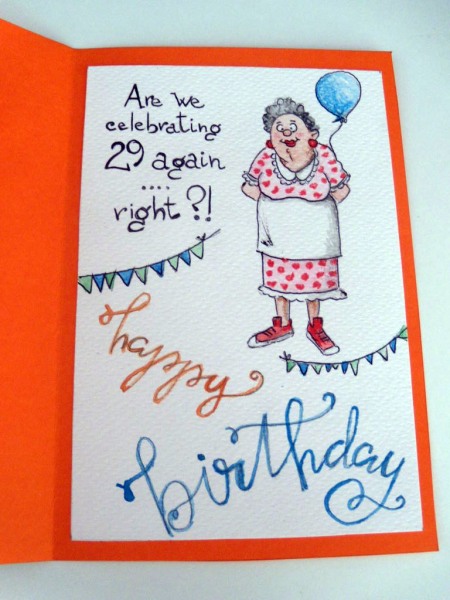 Are we
celebrating
29 again
....
right ?!
happy
birthday